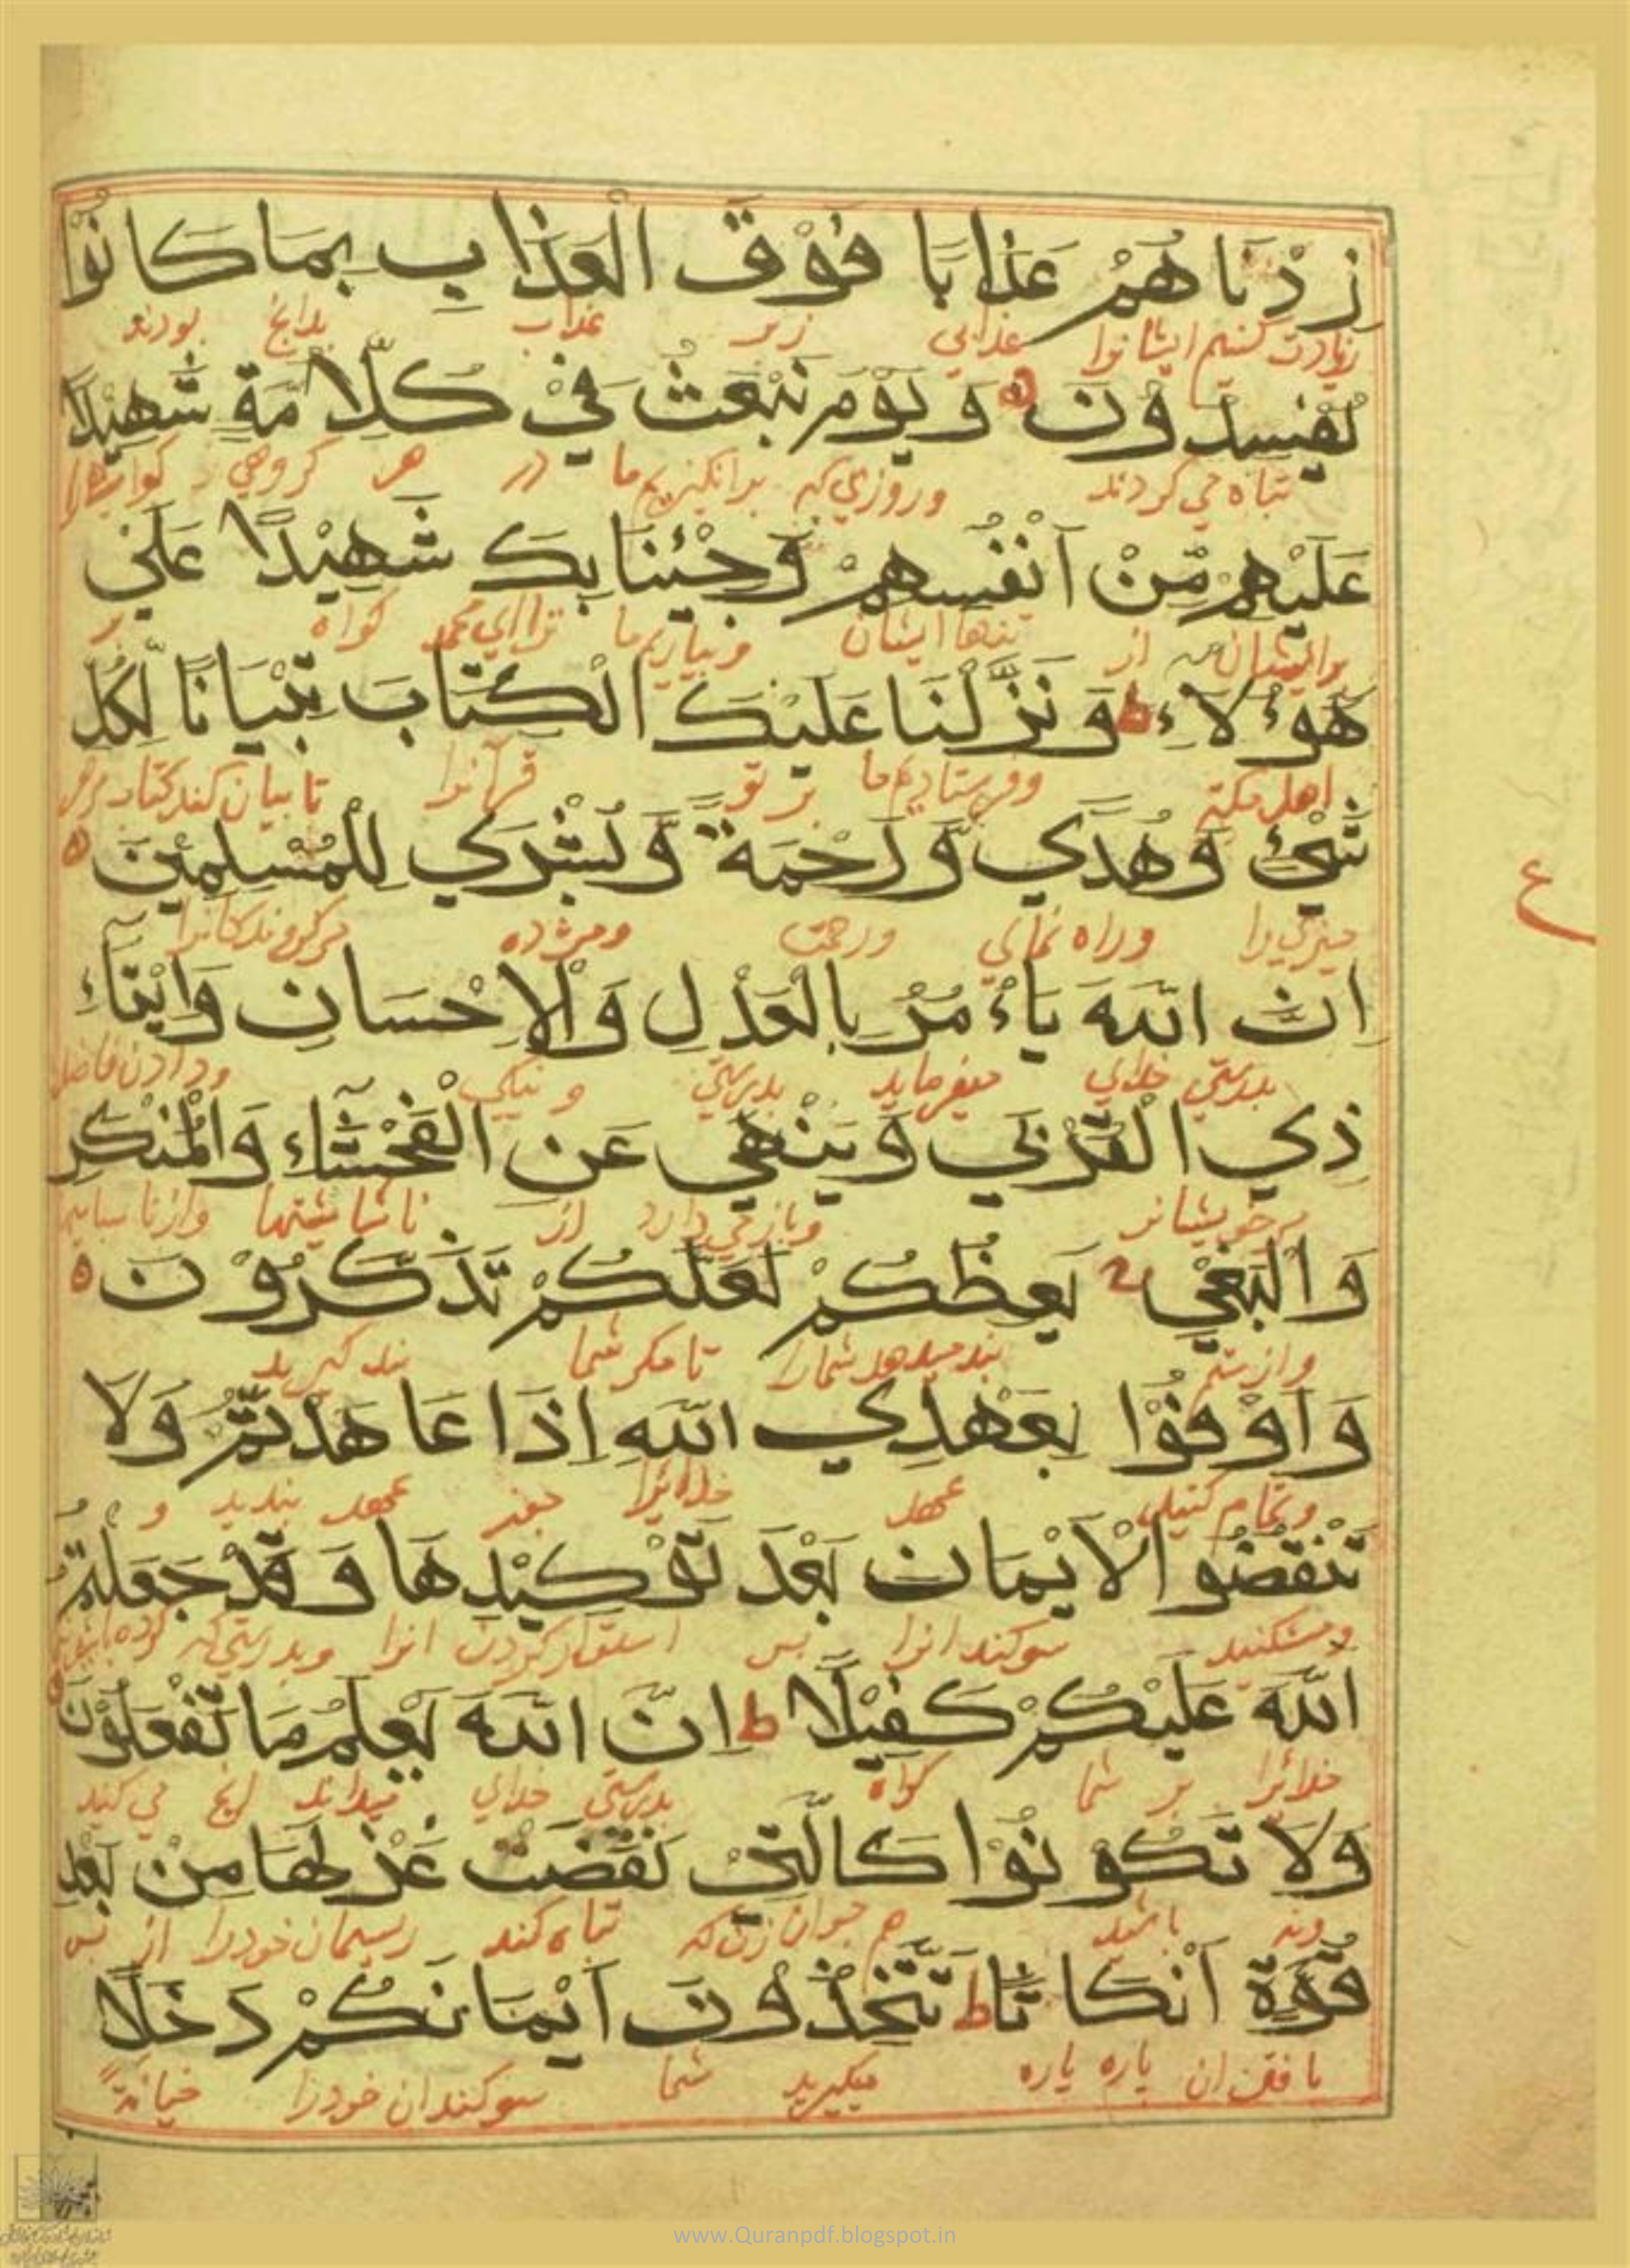 زِدْنَاهُمْ عَذَابًا فَوْقَ الْعَذَابِ بِمَا كَانُوْا
زیادت کنیم ایشانرا عذابی زبر عذاب بدانچ بودند
يُفْسِدُوْنَ وَ يَوْمَ نَبْعَثُ فِيْ كُلِّ اُمَّةٍ شَهِيْدًا
تباه می کردند وروزی که برانگیزیم ما در هر گروهی
عَلَيْهِمْ مِّنْ اَنْفُسِهِمْ وَجِئْنَا بِكَ شَهِيْدًا عَلَي
برایشان از تنهاایشان وبیاریم ما ترا ای محمد گواه بر
هَؤُلَاءِ ط وَ نَزَّلْنَا عَلَيْكَ الْكِتَابَ تِبْيَانًا لِّكُلِّ
اهل مکه وفرستادیم ما بر تو قرآنرا تا بیان کند
شَيْئٍ وَّ هُدًي وَّ رَحْمَةً وَّ بُشْرَي لِلْمُسْلِمِيْنَ ه
چیزی را وراه نمای ورحمت ومژده
ع
اِنَّ اللّٰهَ يَاءْمُرُ بِالْعَدْلِ وَالْاِحْسَانِ وَاِيْتَآءِ
بدرستی خدای میفرماید بدرستی و نیکی ودادن
ذِي الْقُرْبَي وَ يَنْهَي عَنِ الْفَحْشَآءِ وَالْمُنْكَرِ
خویشانر وباز می دارد از ناشایستها
وَالْبَغْيِ يَعِظُكُمْ لَعَلَّكُمْ تَذَكَّرُوْنَ ه
وازستم پند میدهد شمارا تا مگر شما پند گیرید
وَ اَوْفُوْا بِعَهْدِي اللّٰهِ اِذَا عَاهَدْتُّمْ وَلَا
وتمام کنید عهد خدائرا چون عهد بندید و
تَنْقُضُوا الْاَيْمَانَ بَعْدَ تَوْكِيْدِهَا وَ قَدْ جَعَلْتُمُ
ومشکنید سوکند انرا پس استوار کردن انرا وبدرستی که
اللّٰهَ عَلَيْكُمْ كَفِيْلًا ط اِنَّ اللّٰهَ يَعْلَمُ مَا تَفْعَلُوْنَ
خدائرا بر شما گواه بدرستی خدای میداند انچ می کنید
وَلَا تَكُوْنُوْا كَالَّتِيْ نَقَضَتْ غَزْلَهَا مِنْ بَعْدِ
ونه باشید هم چون آن زن که تباه کند ریسمان خودرا از پس
قُوَّةٍ اَنْكَاثًا ط تَتَّخِذُوْنَ اَيْمَانَكُمْ دَخَلًا
بافتن ان پاره پاره میگیرید شما سوکندان خودرا خیانة
www.Quranpdf.blogspot.in